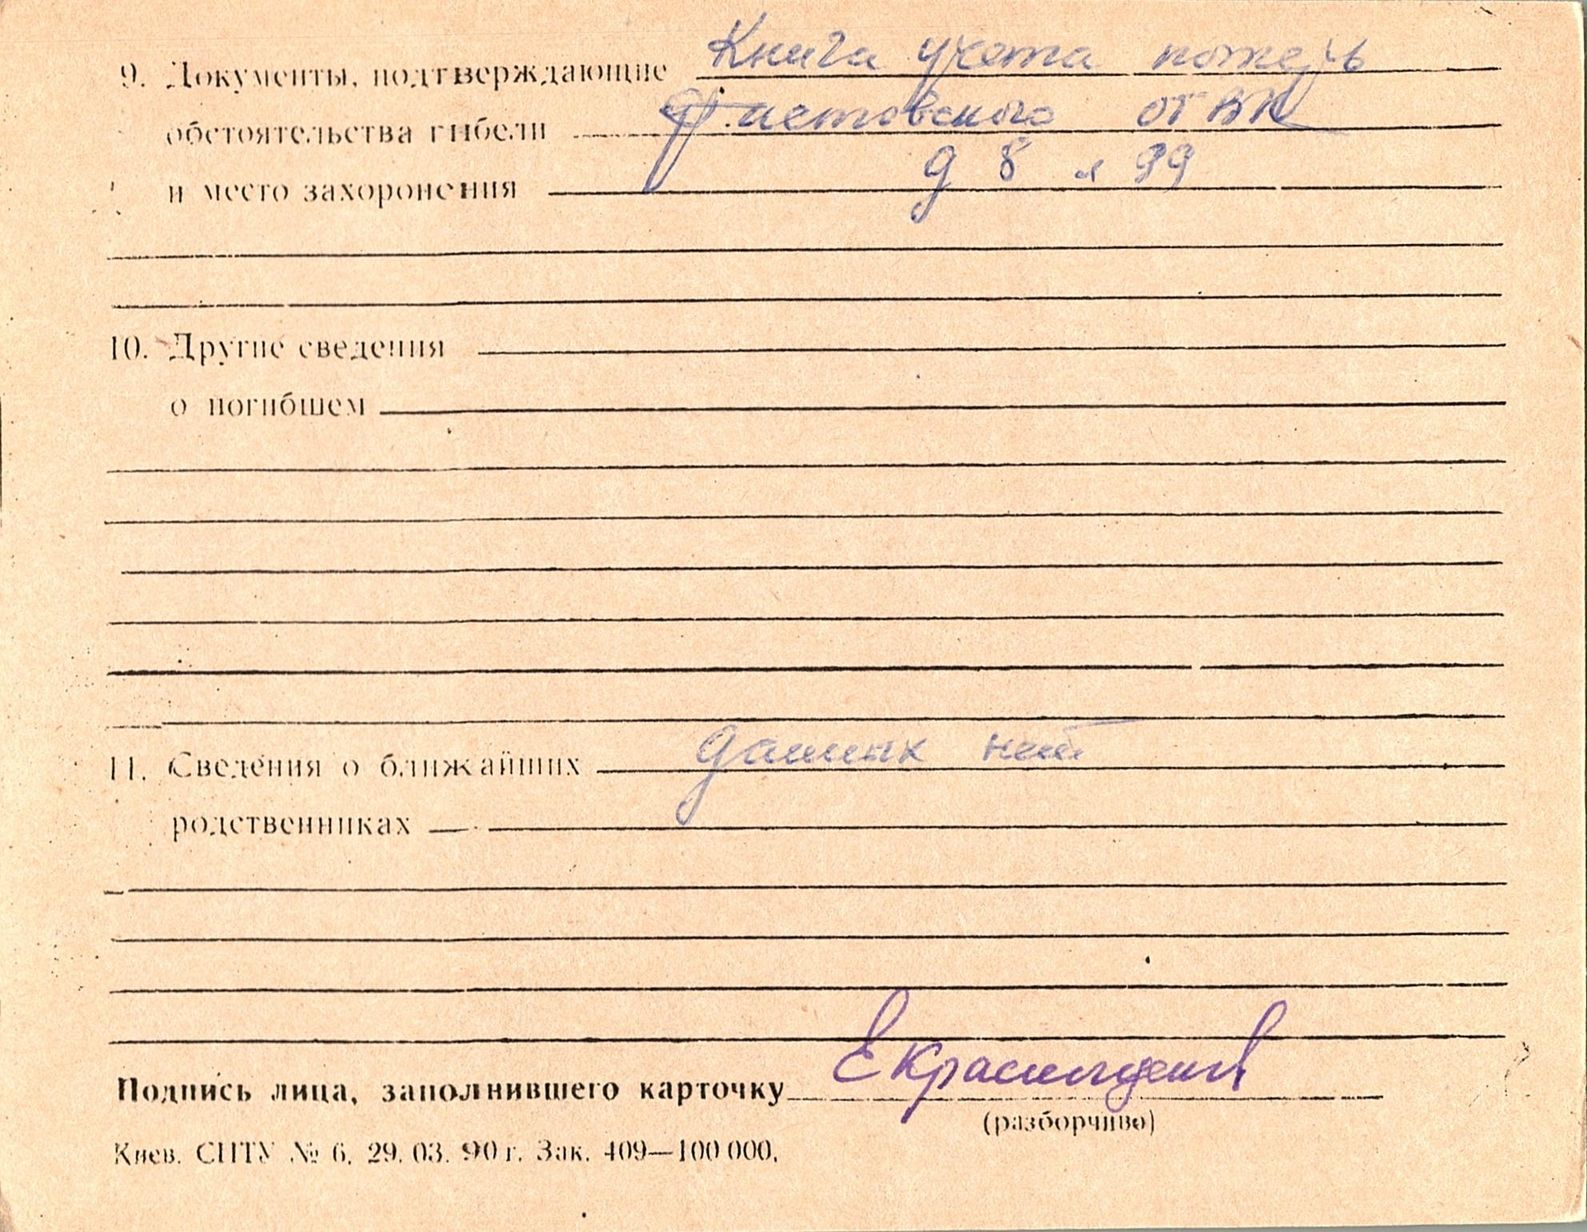 9. Документы, подтверждающие Книга учета потерь
обстоятельства гибели Фастовского ОГВК
и место захоронения д 8 л 99
10. Другие сведения
о погибшем
11. Сведения о ближайших данных нет
родственниках
Подпись лица, заполнившего карточку
(разборчиво)
Киев. СПТУ № 6. 29. 03. 90 г. Зак. 409—100 000.